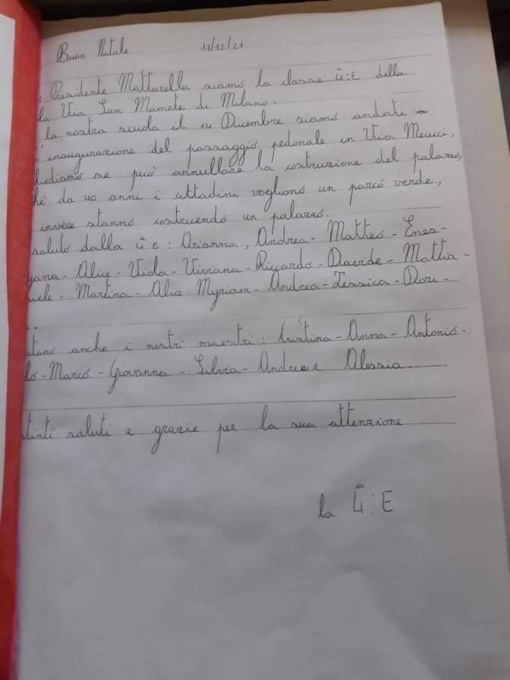 Buon Natale 17/12/21
Presidente Mattarella siamo la classe 4ªE della
Via San Mamete di Milano.
la nostra scuola il 14 Dicembre siamo andati a
inaugurazione del passaggio pedonale in Via Meucci,
chiediamo se può annullare la costruzione del palazzo,
da 40 anni i cittadini vogliono un parco verde,
invece stanno costruendo un palazzo.
saluto dalla 4ªE: Arianna, Andrea - Matteo - Enea -
Alice - Viola - Viviana - Riccardo - Davide - Mattia -
Martina - Alice - Myriam - Andrea - Jessica - Dori -
anche i nostri maestri: Cristina - Anna - Antonio -
Marco - Giovanna - Silvia - Andrea e Alessia.
saluti e grazie per la sua attenzione
la 4ª:E